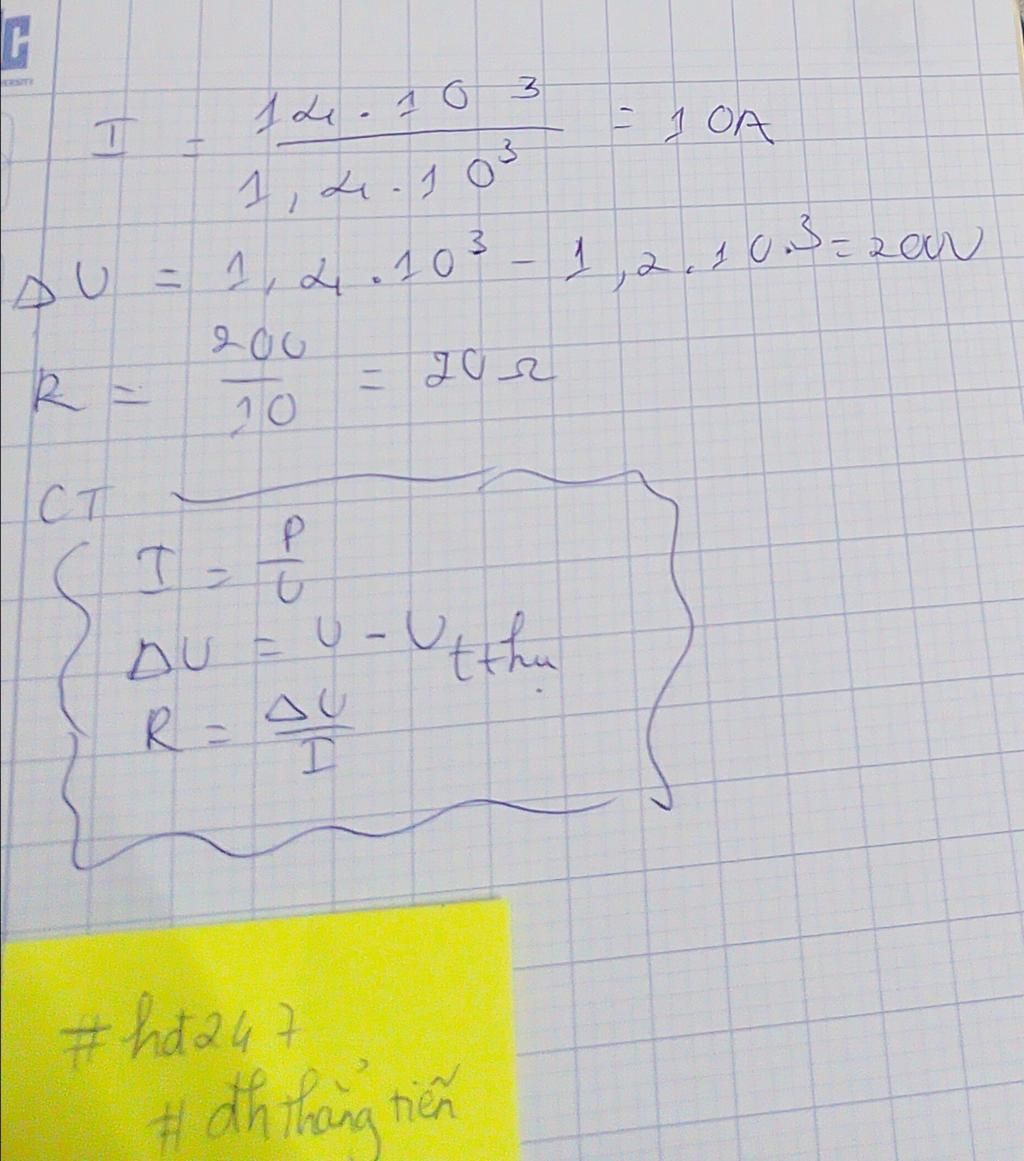 I = 14.10³ / 1,4.10³ = 10A
ΔU = 1,4.10³ - 1,2.10.³ = 200V
R = 200 / 10 = 20Ω
CT
I = P / U
ΔU = U - U tthụ
R = ΔU / I
#hd247
#đhthẳng tiến